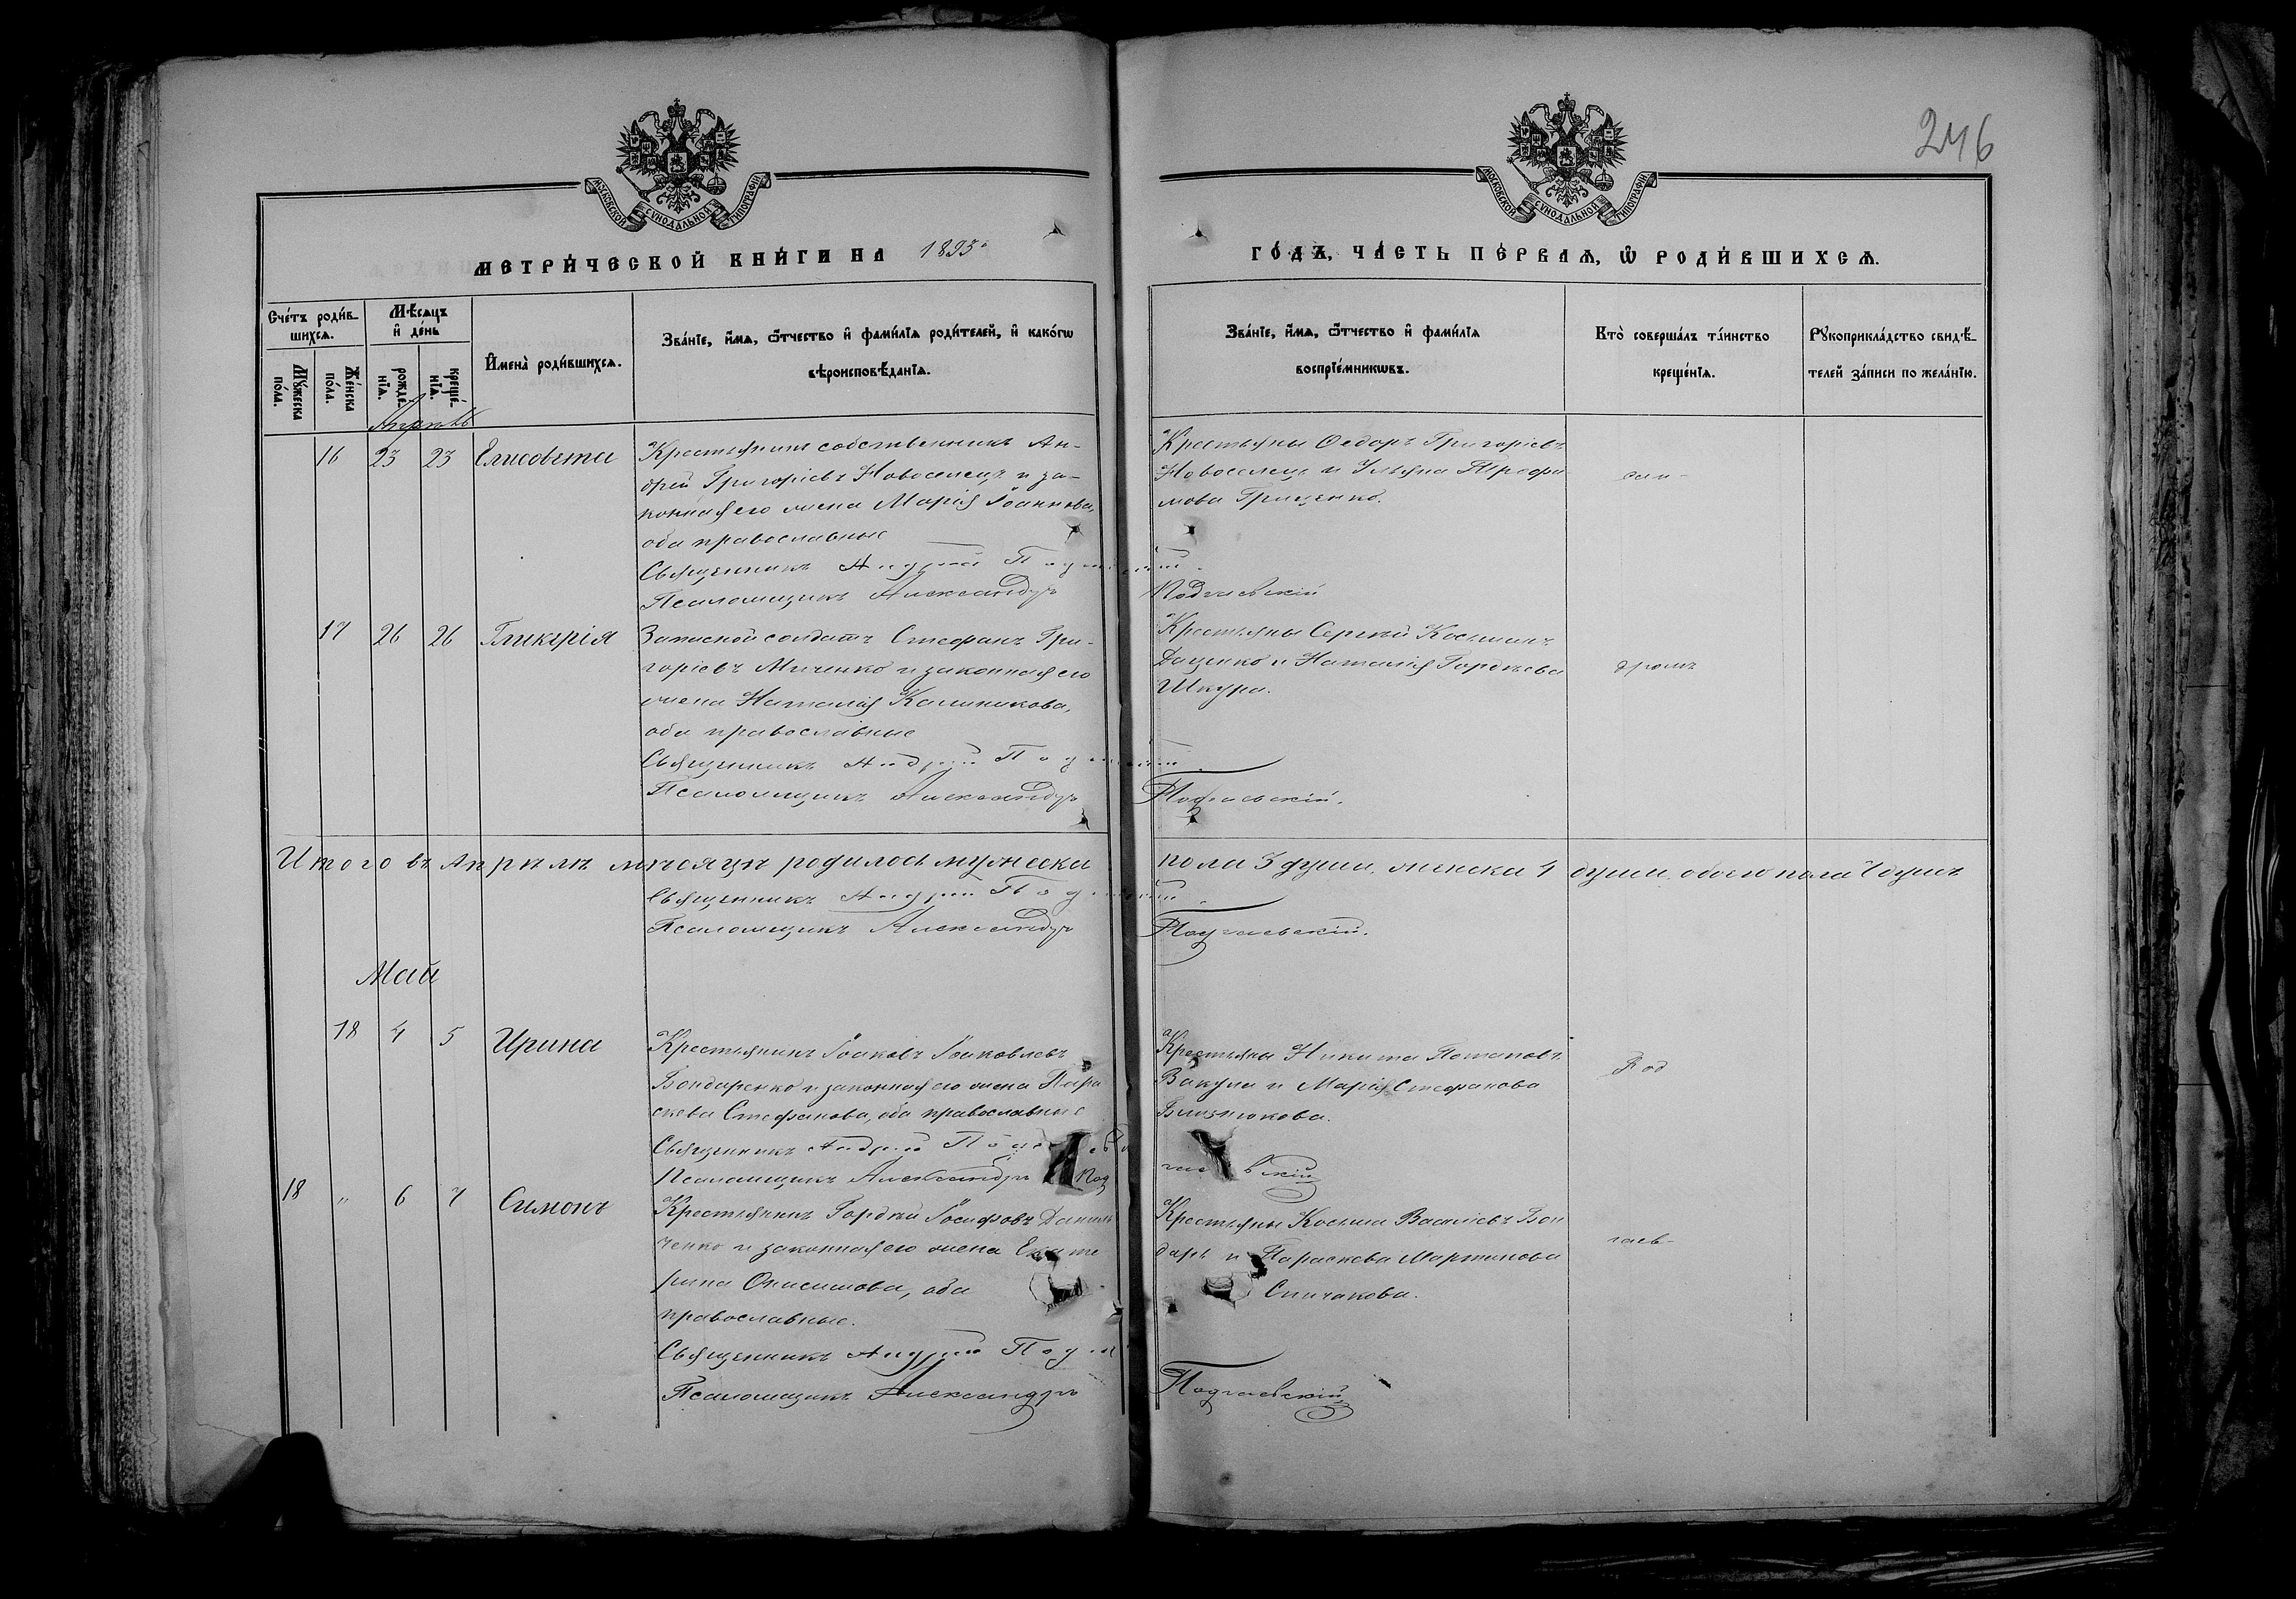 246
МОСКОВСКОЙ СѴНОДАЛЬНОЙ ТИПОГРАФІИ
МОСКОВСКОЙ СѴНОДАЛЬНОЙ ТИПОГРАФІИ
МЕТРИ́ЧЕСКОЙ КНИ́ГИ НА 1893
ГО́ДЪ, ЧА́СТЬ ПЕ́РВАЯ, Ѿ РОДИ́ВШИХСЯ.
Сче́тъ роди́в-
шихся.
Мѣ́сяцъ
и де́нь
Му́жеска по́ла.
Же́нска по́ла.
рожде́-
нїя.
креще́-
нїя.
Имена̀ роди́вшихся.
Зва́нїе, и́мя, ѻ́тчество и фами́лїя роди́телей, и како́гѡ
вѣроисповѣ́данїя.
Зва́нїе, и́мя, ѻ́тчество и фами́лїя
воспрїе́мникѡвъ.
Кто̀ соверша́лъ та́инство
креще́нїя.
Рꙋкоприкла́дство свидѣ́-
телей за́писи по жела́нїю.
Апрѣль
16 23 23 Елисовета
Крестьянинъ собственникъ Ан-
дрей Григоріевъ Новоселецъ и за-
конная его жена Марія Іоаннова,
оба православные
Священникъ Андрей
Псаломщикъ Александръ Подгаевскій
Крестьяны Ѳедоръ Григоріевъ
Новоселецъ и Ульяна Трофи-
мова Гриценко.
17 26 26 Гликерія
Запасной солдатъ Стефанъ Гри-
горіевъ Миченко и законная его
жена Наталія Калиникова,
оба православные
Священникъ Андрей
Псаломщикъ Александръ Подгаевскій.
Крестьяны Сергѣй Косьминъ
Даценко и Наталія Гордѣева
Шкура.
Итого въ Апрѣлѣ мѣсяцѣ родилось мужеска пола 3 души, женска 4 души, обоего пола 7 душъ
Священникъ Андрей
Псаломщикъ Александръ Подгаевскій.
Май
18 4 5 Ирина
Крестьянинъ Іоаковъ Іоаковлевъ
Бондаренко и законная его жена Пара
скева Стефанова, оба православные
Священникъ Андрей
Псаломщикъ Александръ Подгаевскій
Крестьяны Никита Потаповъ
Вакула и Марія Стефанова
Близнюкова.
Под
18 " 6 7 Симонъ
Крестьянинъ Гордѣй Іосифовъ Данил
ченко и законная его жена Екате
рина Онисимова, оба
православные.
Священникъ Андрей
Псаломщикъ Александръ Подгаевскій
Крестьяны Косьма Василіевъ Бон
даръ и Параскева Мартинова
Спичакова.
гаев-